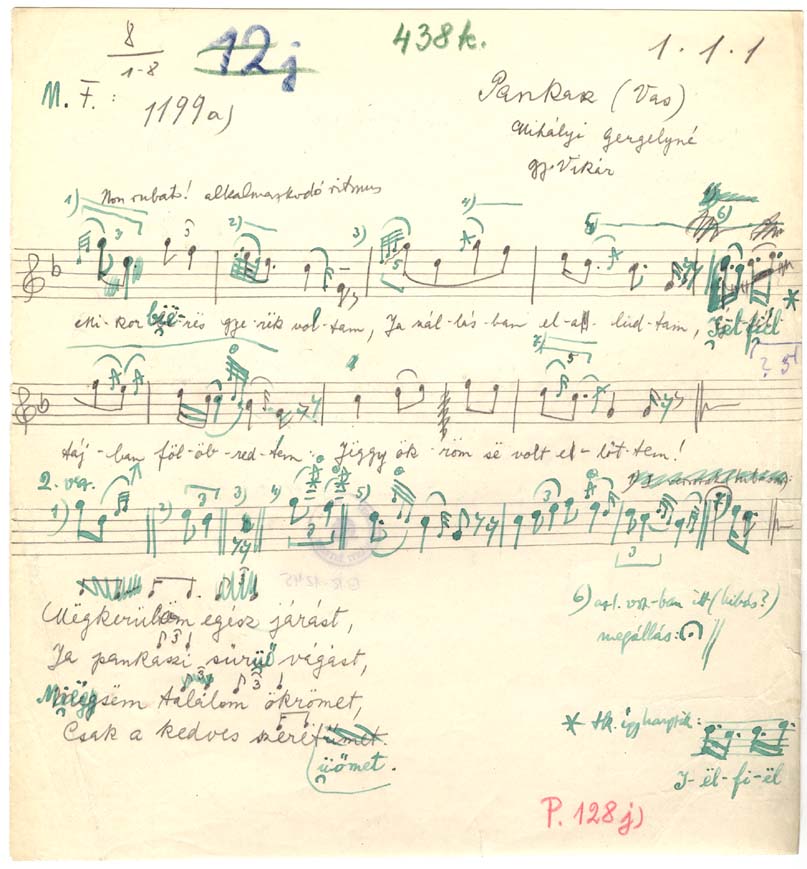 8
1-8
12j
438k.
1.1.1
M. F.:
1199a)
Pankasz (Vas)
Mihályi Gergelyné
gy. Vikár
1) Non rubato! alkalmazkodó ritmus
2) 3) 4) 5 6)
3 3 5
Mi-kor bëë-rës gye-rëk vol-tam, Ja nál-lás-ban el-a- lud-tam, Jét-fiél
? 5
7)
5
táj-ban föl-öb-red-tem. Jiggy ök-röm së volt el-löt-tem!
2. vsz.
1) 2) 3) 4) 5)
3 3 3 3
Mëgkerülöm egész járást,
Ja pankaszi sürüő vágást,
Miëgsëm találom ökrömet,
Csak a kedves szeret
üőmet.
6) vsz-ban itt (hibás?)
megállás:
* tk. így hangzik:
J-ël-fi-ël
P. 128j)